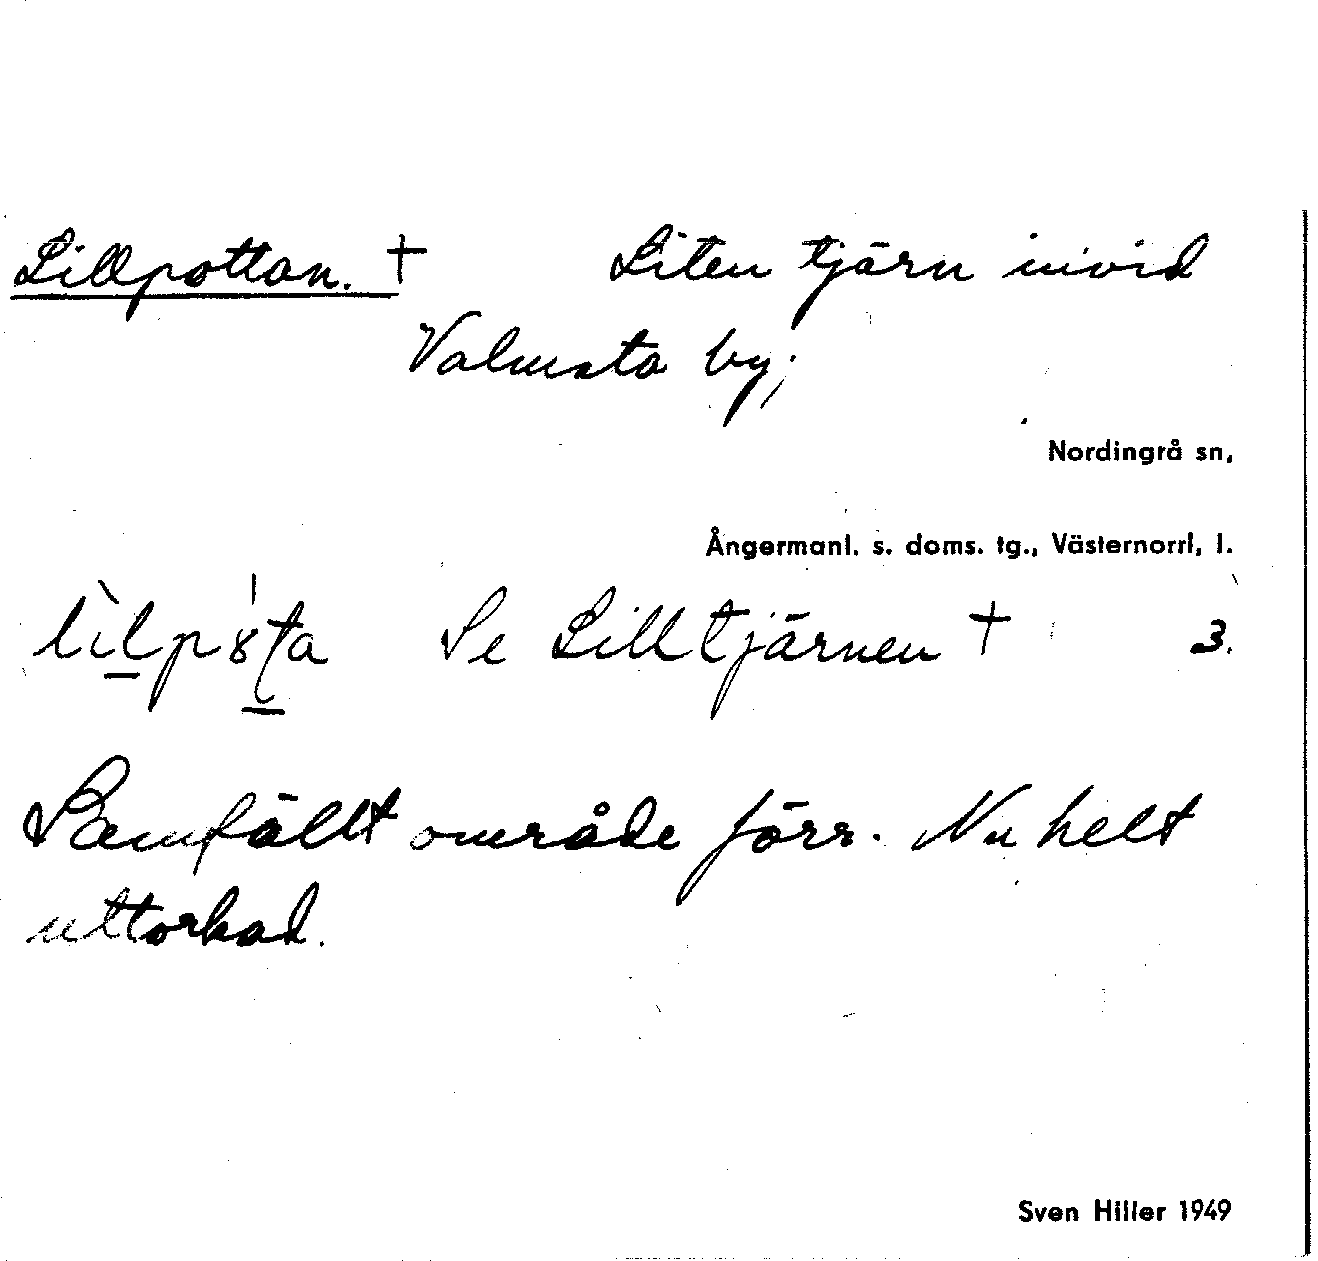 Lillpottan. † Liten tjärn invid
Valmsta by;
Nordingrå sn,
Ångermanl. s. doms. tg., Västernorrl. l.
Se Lilltjärnen † 3.
Samfällt område förr. Nu helt
uttorkad.
Sven Hiller 1949